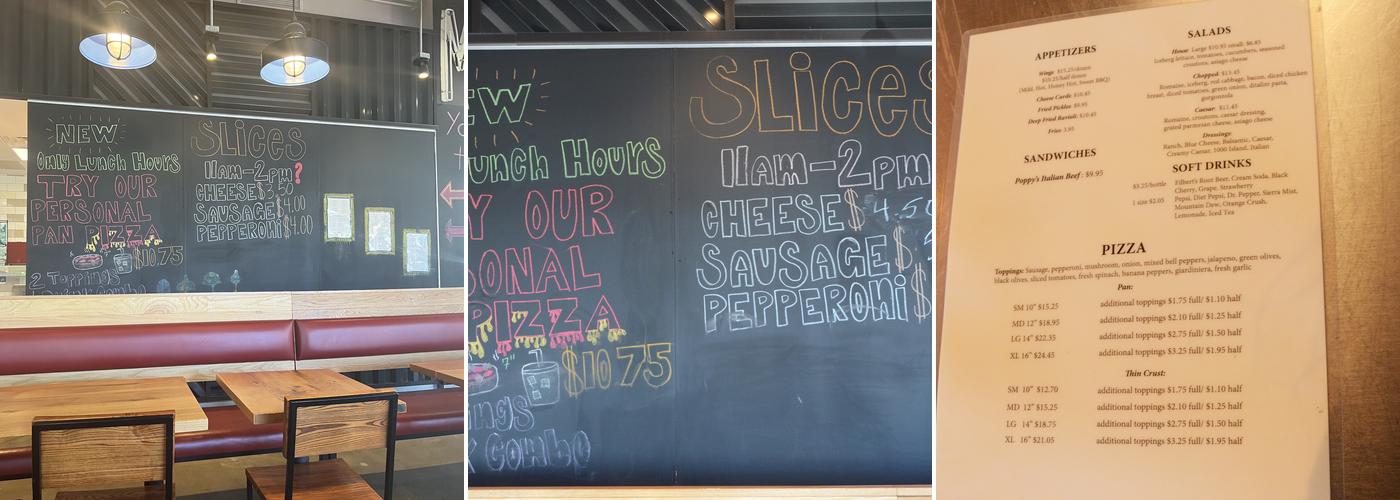 NEW
Only Lunch Hours
TRY OUR
PERSONAL
PAN PIZZA
$10.75
2 Toppings
SLiCES
11am-2pm?
CHEESE $3.50
SAUSAGE $4.00
PEPPERONi $4.00
EW
unch Hours
Y OUR
SONAL
PIZZA
"7"
$10.75
ings
Combo
SLiCES
11am-2pm
CHEESE $4.50
SAUSAGE $
PEPPERONi $
APPETIZERS
Wings $15.25/dozen
$10.25/half dozen
(Mild, Hot, Honey Hot, Sweet BBQ)
Cheese Curds: $10.45
Fried Pickles: $9.95
Deep Fried Ravioli: $10.45
Fries: 3.95
SANDWICHES
Poppy's Italian Beef: $9.95
SALADS
House: Large $10.95 small: $6.85
Iceberg lettuce, tomatoes, cucumbers, seasoned
croutons, asiago cheese
Chopped: $13.45
Romaine, iceberg, red cabbage, bacon, diced chicken
breast, diced tomatoes, green onion, ditalini pasta,
gorgonzola
Caesar: $11.45
Romaine, croutons, caesar dressing,
grated parmesan cheese, asiago cheese
Dressings:
Ranch, Blue Cheese, Balsamic, Caesar,
Creamy Caesar, 1000 Island, Italian
SOFT DRINKS
$3.25/bottle Filbert's Root Beer, Cream Soda, Black
Cherry, Grape, Strawberry
1 size $2.05 Pepsi, Diet Pepsi, Dr. Pepper, Sierra Mist,
Mountain Dew, Orange Crush,
Lemonade, Iced Tea
PIZZA
Toppings: Sausage, pepperoni, mushroom, onion, mixed bell peppers, jalapeno, green olives,
black olives, sliced tomatoes, fresh spinach, banana peppers, giardiniera, fresh garlic
Pan:
SM 10" $15.25 additional toppings $1.75 full/ $1.10 half
MD 12" $18.95 additional toppings $2.10 full/ $1.25 half
LG 14" $22.35 additional toppings $2.75 full/ $1.50 half
XL 16" $24.45 additional toppings $3.25 full/ $1.95 half
Thin Crust:
SM 10" $12.70 additional toppings $1.75 full/ $1.10 half
MD 12" $15.25 additional toppings $2.10 full/ $1.25 half
LG 14" $18.75 additional toppings $2.75 full/ $1.50 half
XL 16" $21.05 additional toppings $3.25 full/ $1.95 half